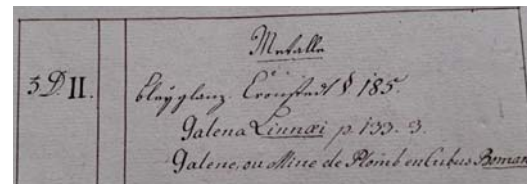 Metalle
3 D. II. Bleyglanz. Cronstedt §. 185.
Galena Linnæi p. 133. 3.
Galene, ou Mine de Plomb en Cubus Boman